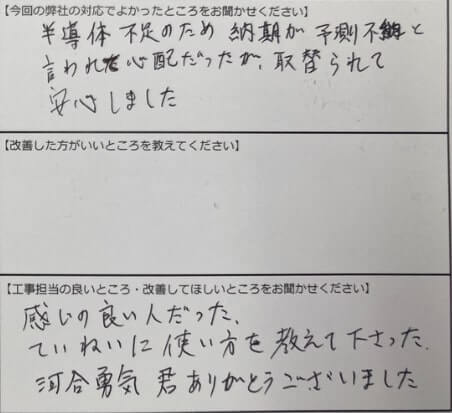 【今回の弊社の対応でよかったところをお聞かせください】
半導体 不足のため 納期が 予測不能と
言われて心配だったが、取替られて
安心しました
【改善した方がいいところを教えてください】
【工事担当の良いところ・改善してほしいところをお聞かせください】
感じの良い人だった、
ていねいに 使い方を 教えて下さった.
河合勇気 君 ありがとうございました